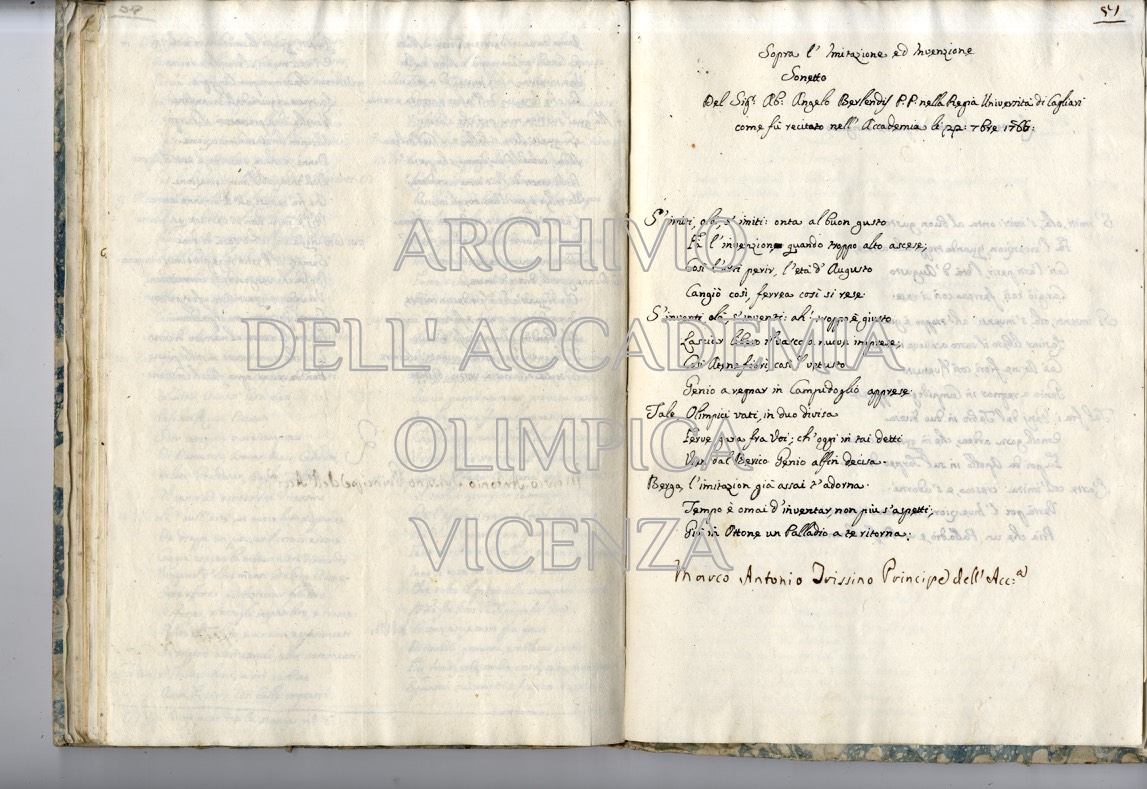 51
Sopra l' Imitazione ed Invenzione
Sonetto
Del Sigr. Ab: Angelo Berlendis P. P. nella Regia Università di Cagliari
come fù recitato nell' Accademia li 22: 7bre 1766:
S' imiti, olà, s' imiti: onta al buon gusto
Fà l' invenzione quando troppo alto ascese;
Così l'arti perir, l'età d' Augusto
Cangiò così, ferrea così si rese.
S' inventi olà s' inventi: ah! troppo è giusto
Lasciar libero il varco a nuove imprese;
Così Atene fiorì, così il vetusto
Genio a regnar in Campidoglio apprese.
Tale Olimpici vati, in duo divisa
Ferve gara fra Voi; ch' oggi in tai detti
Vien dal Berico Genio alfin decisa.
Berga, l'imitazion già assai t'adorna.
Tempo è omai d'inventar, non più s'aspetti;
Già in Ottone un Palladio a te ritorna.
Marco Antonio Trissino Principe dell' Acc:a
ARCHIVIO
DELL'ACCADEMIA
OLIMPICA
VICENZA